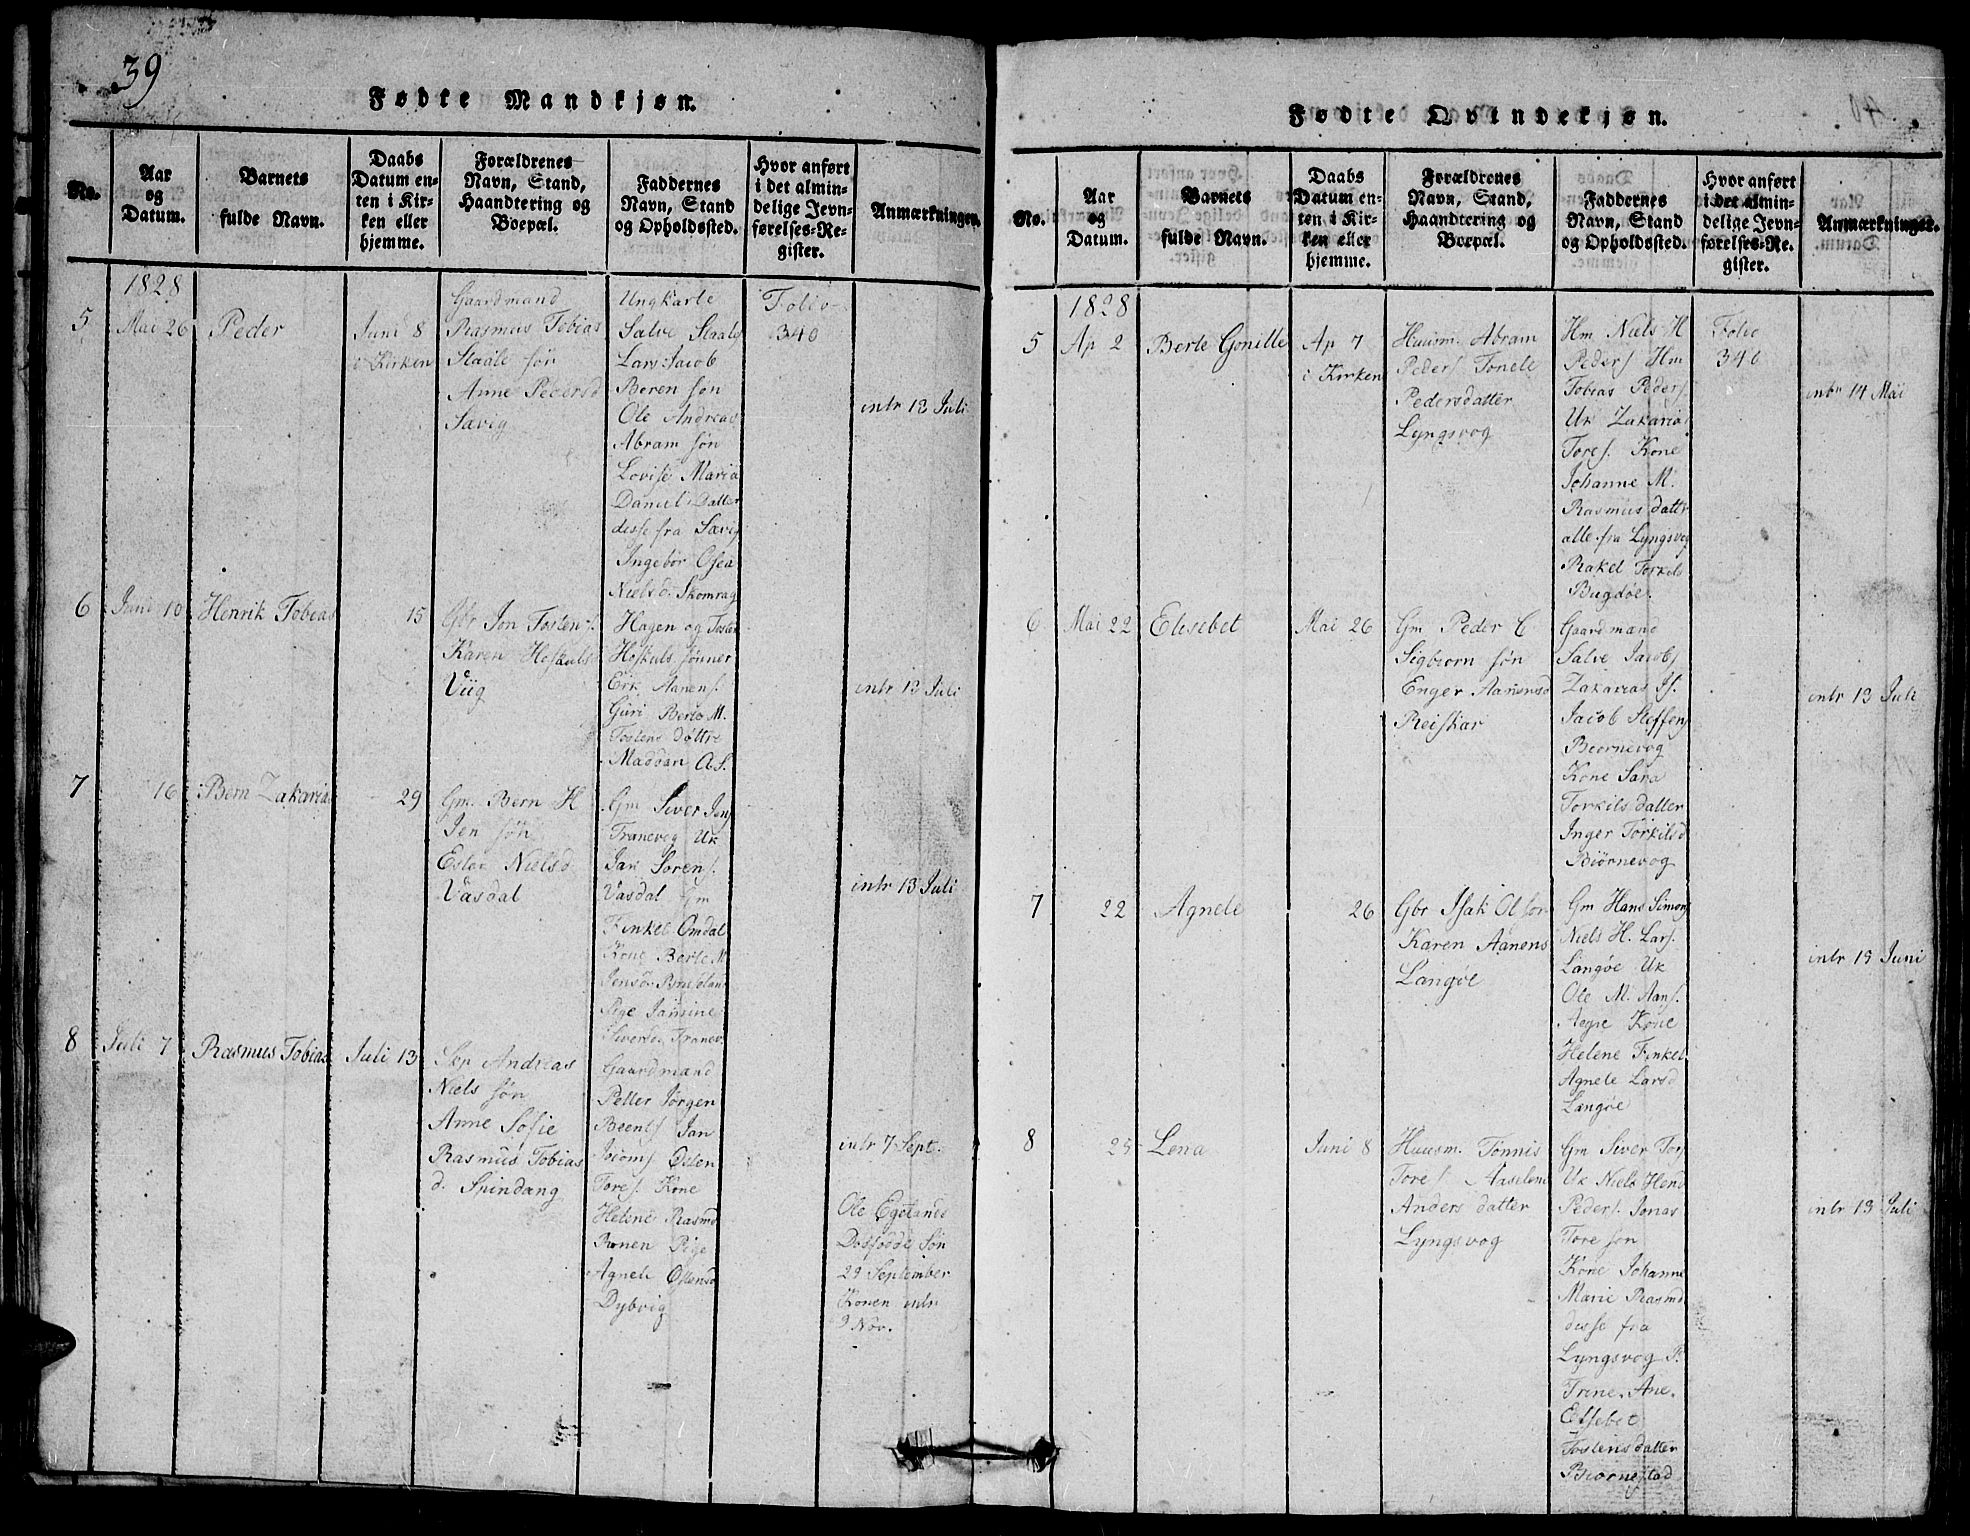 39
Fødte Mandkjøn.
No.
Aar
og
Datum.
Barnets
fulde Navn.
Daabs
Datum en-
ten i Kir-
ken eller
hjemme.
Forældrenes
Navn, Stand,
Haandtering og
Boepæl.
Faddernes
Navn, Stand
og Opholdssted.
Hvor anført
i det almin-
delige Jevn-
førelses-Re-
gister.
Anmærkninger.
1828
5
Mai 26
Peder
Juni 8
i Kirken
Gaardmand
Rasmus Tobias
Staale søn
Anne Pedersd
Sævig
Ungkarle
Salve Staales
Lars Jacob
Beren søn
Ole Andreas
Abram søn
Lovise Maria
Daniel Datter
disse fra Sævig
Ingebor Osea
Nielsd. Skomrag
Folio
340
intr 13 Juli
6
Juni 10
Henrik Tobias
15
Gbr Jon Tosten s.
Karen Heskuls
Viig
Hagen og Tosten
Heskuls sønner
Erk Aanens.
Guri Berto M.
Tostens døttre
Maddan A S.
intr 13 Juli
7
16
Bern Zakarias
29
Gm. Bern H
Jen søn
Ester Nielsd
Vasdal
Gm Siver Jens
Tranevog Uk
Jan Sorens.
Vasdal Gm
Finkel Omdal
Kone Berte M
Jensd.
Pige Jansine
Siversd. Tranev.
intr 13 Juli
8
Juli 7
Rasmus Tobias
Juli 13
Skp Andreas
Niels søn
Anne Sofie
Rasmus Tobias
d. Spindang
Gaardmand
Petter Jorgen
Beents Jan
Jocoms Osten
Tores. Kone
Helene Rasmd
Ronen Pige
Agnete Ostensd
Dybvig
intr 7 Sept.
Ole Egelands
Dødfødde Søn
29 September
Konen intr
9 Nov.
Fødte Qvindekjøn.
No.
Aar
og
Datum.
Barnets
fulde Navn.
Daabs
Datum en-
ten i Kir-
ken eller
hjemme.
Forældrenes
Navn, Stand,
Haandtering og
Boepæl.
Faddernes
Navn, Stand
og Opholdssted.
Hvor anført
i det almin-
delige Jevn-
førelses-Re-
gister.
Anmærkninger.
1828
5
Ap 2
Berte Gonille
Ap 7
i Kirken
Huusm. Abram
Peders Tonele
Pedersdatter
Lyngsvog
Hm Niels H
Peders Hm
Tobias Peders
Uk Zakarias
Tores. Kone
Johanne M.
Rasmus datter
alle fra Lyngsvog
Rakel Torkels
Bugdøe.
Folio
340
intr 14 Mai
6
Mai 22
Elisebet
Mai 26
Gm Peder C
Sigbiorn søn
Enger Aanensd
Reiskar
Gaardmænd
Salve Jacobs
Zakarias Js.
Jacob Steffens
Beornevog
Kone Sara
Torkils datter
Inger Torkilsd
Biørnevog
intr 13 Juli
7
22
Agnele
26
Gbr Isak Olson
Karen Aanens
Langøe
Gm Hans Simons
Niels H. Lars.
Langøe Uk
Ole M. Aans.
Aagre Kone
Helene Finkel
Agnele Larsd
Langøe
intr 19 Juni
8
25
Lena
Juni 8
Huusm. Tønnis
Tores Aaselene
Anders datter
Lyngsvog
Gm Siver Tors
Uk Niels Hend
Peders. Jonas
Tore søn
Kone Johanne
Marie Rasmd.
disse fra
Lyngsvog P.
Trine Ane
Elsebet
Tostensdatter
Biornestad
intr 13 Juli